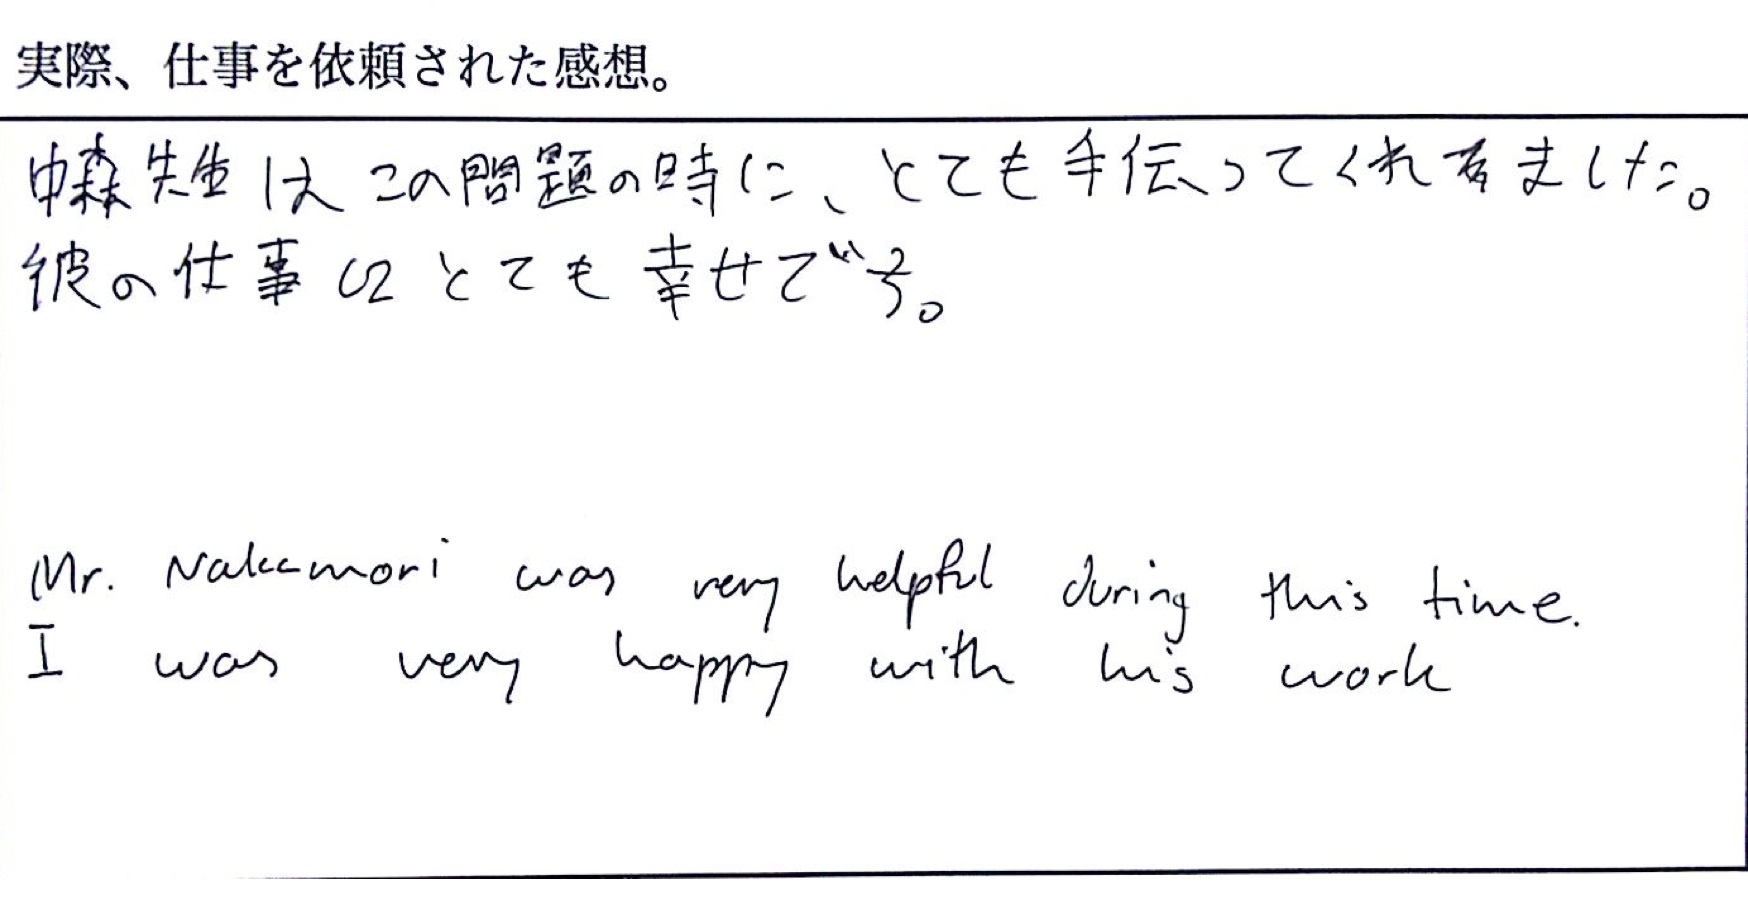 実際、仕事を依頼された感想。
中森先生はこの問題の時に、とても手伝ってくれました。
彼の仕事はとても幸せです。
Mr. Nakamori was very helpful during this time.
I was very happy with his work